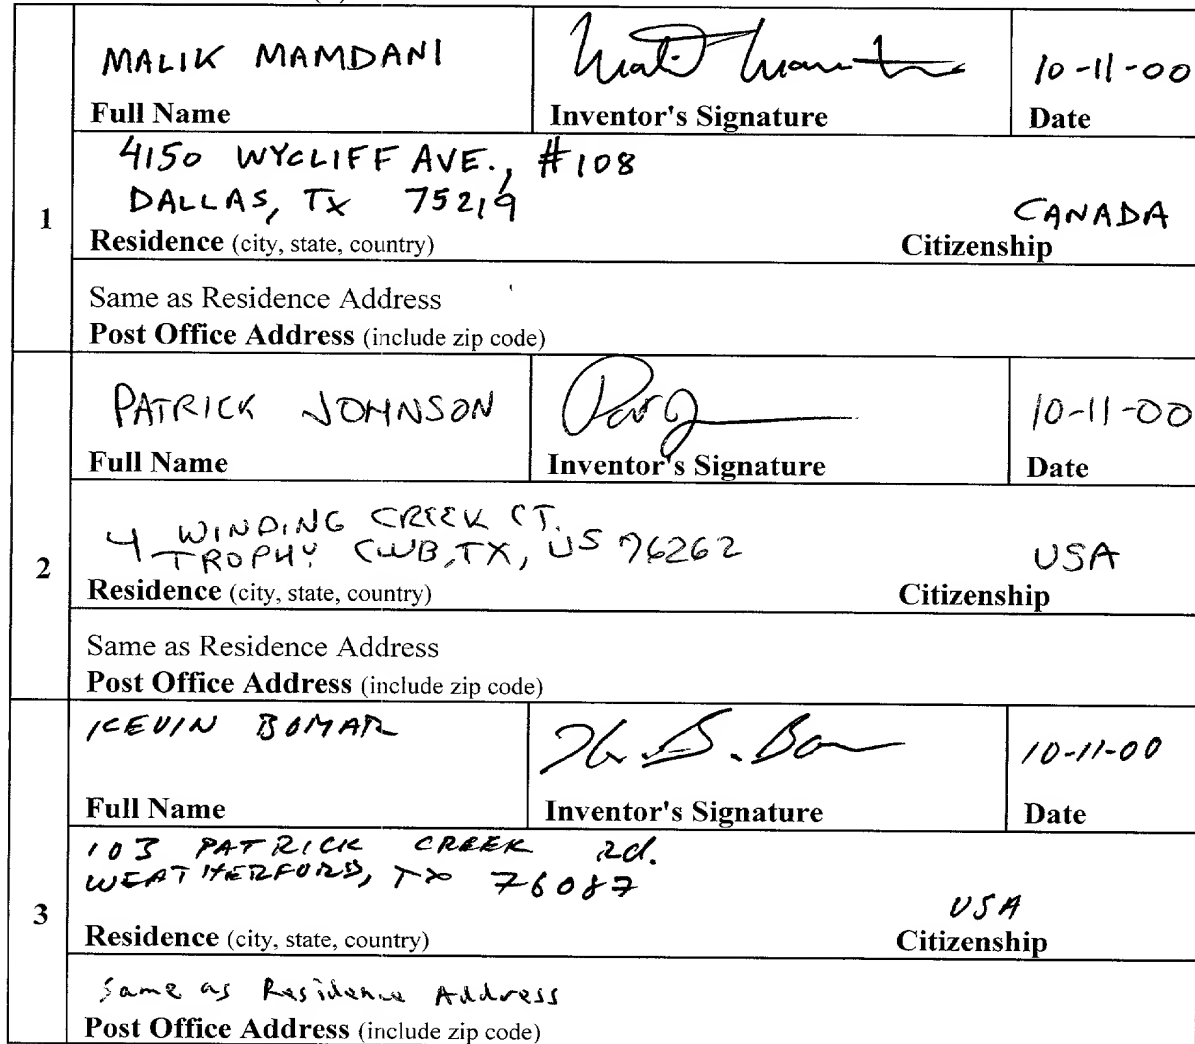 MALIK MAMDANI
10-11-00
Full Name
Inventor's Signature
Date
1
4150 WYCLIFF AVE., #108
DALLAS, TX 75219
CANADA
Residence (city, state, country)
Citizenship
Same as Residence Address
Post Office Address (include zip code)
PATRICK JOHNSON
10-11-00
Full Name
Inventor's Signature
Date
2
4 WINDING CREEK CT.
TROPHY CLUB, TX, US 76262
USA
Residence (city, state, country)
Citizenship
Same as Residence Address
Post Office Address (include zip code)
KEVIN BOMAR
10-11-00
Full Name
Inventor's Signature
Date
3
103 PATRICK CREEK Rd.
WEATHERFORD, TX 76087
USA
Residence (city, state, country)
Citizenship
Same as Residence Address
Post Office Address (include zip code)